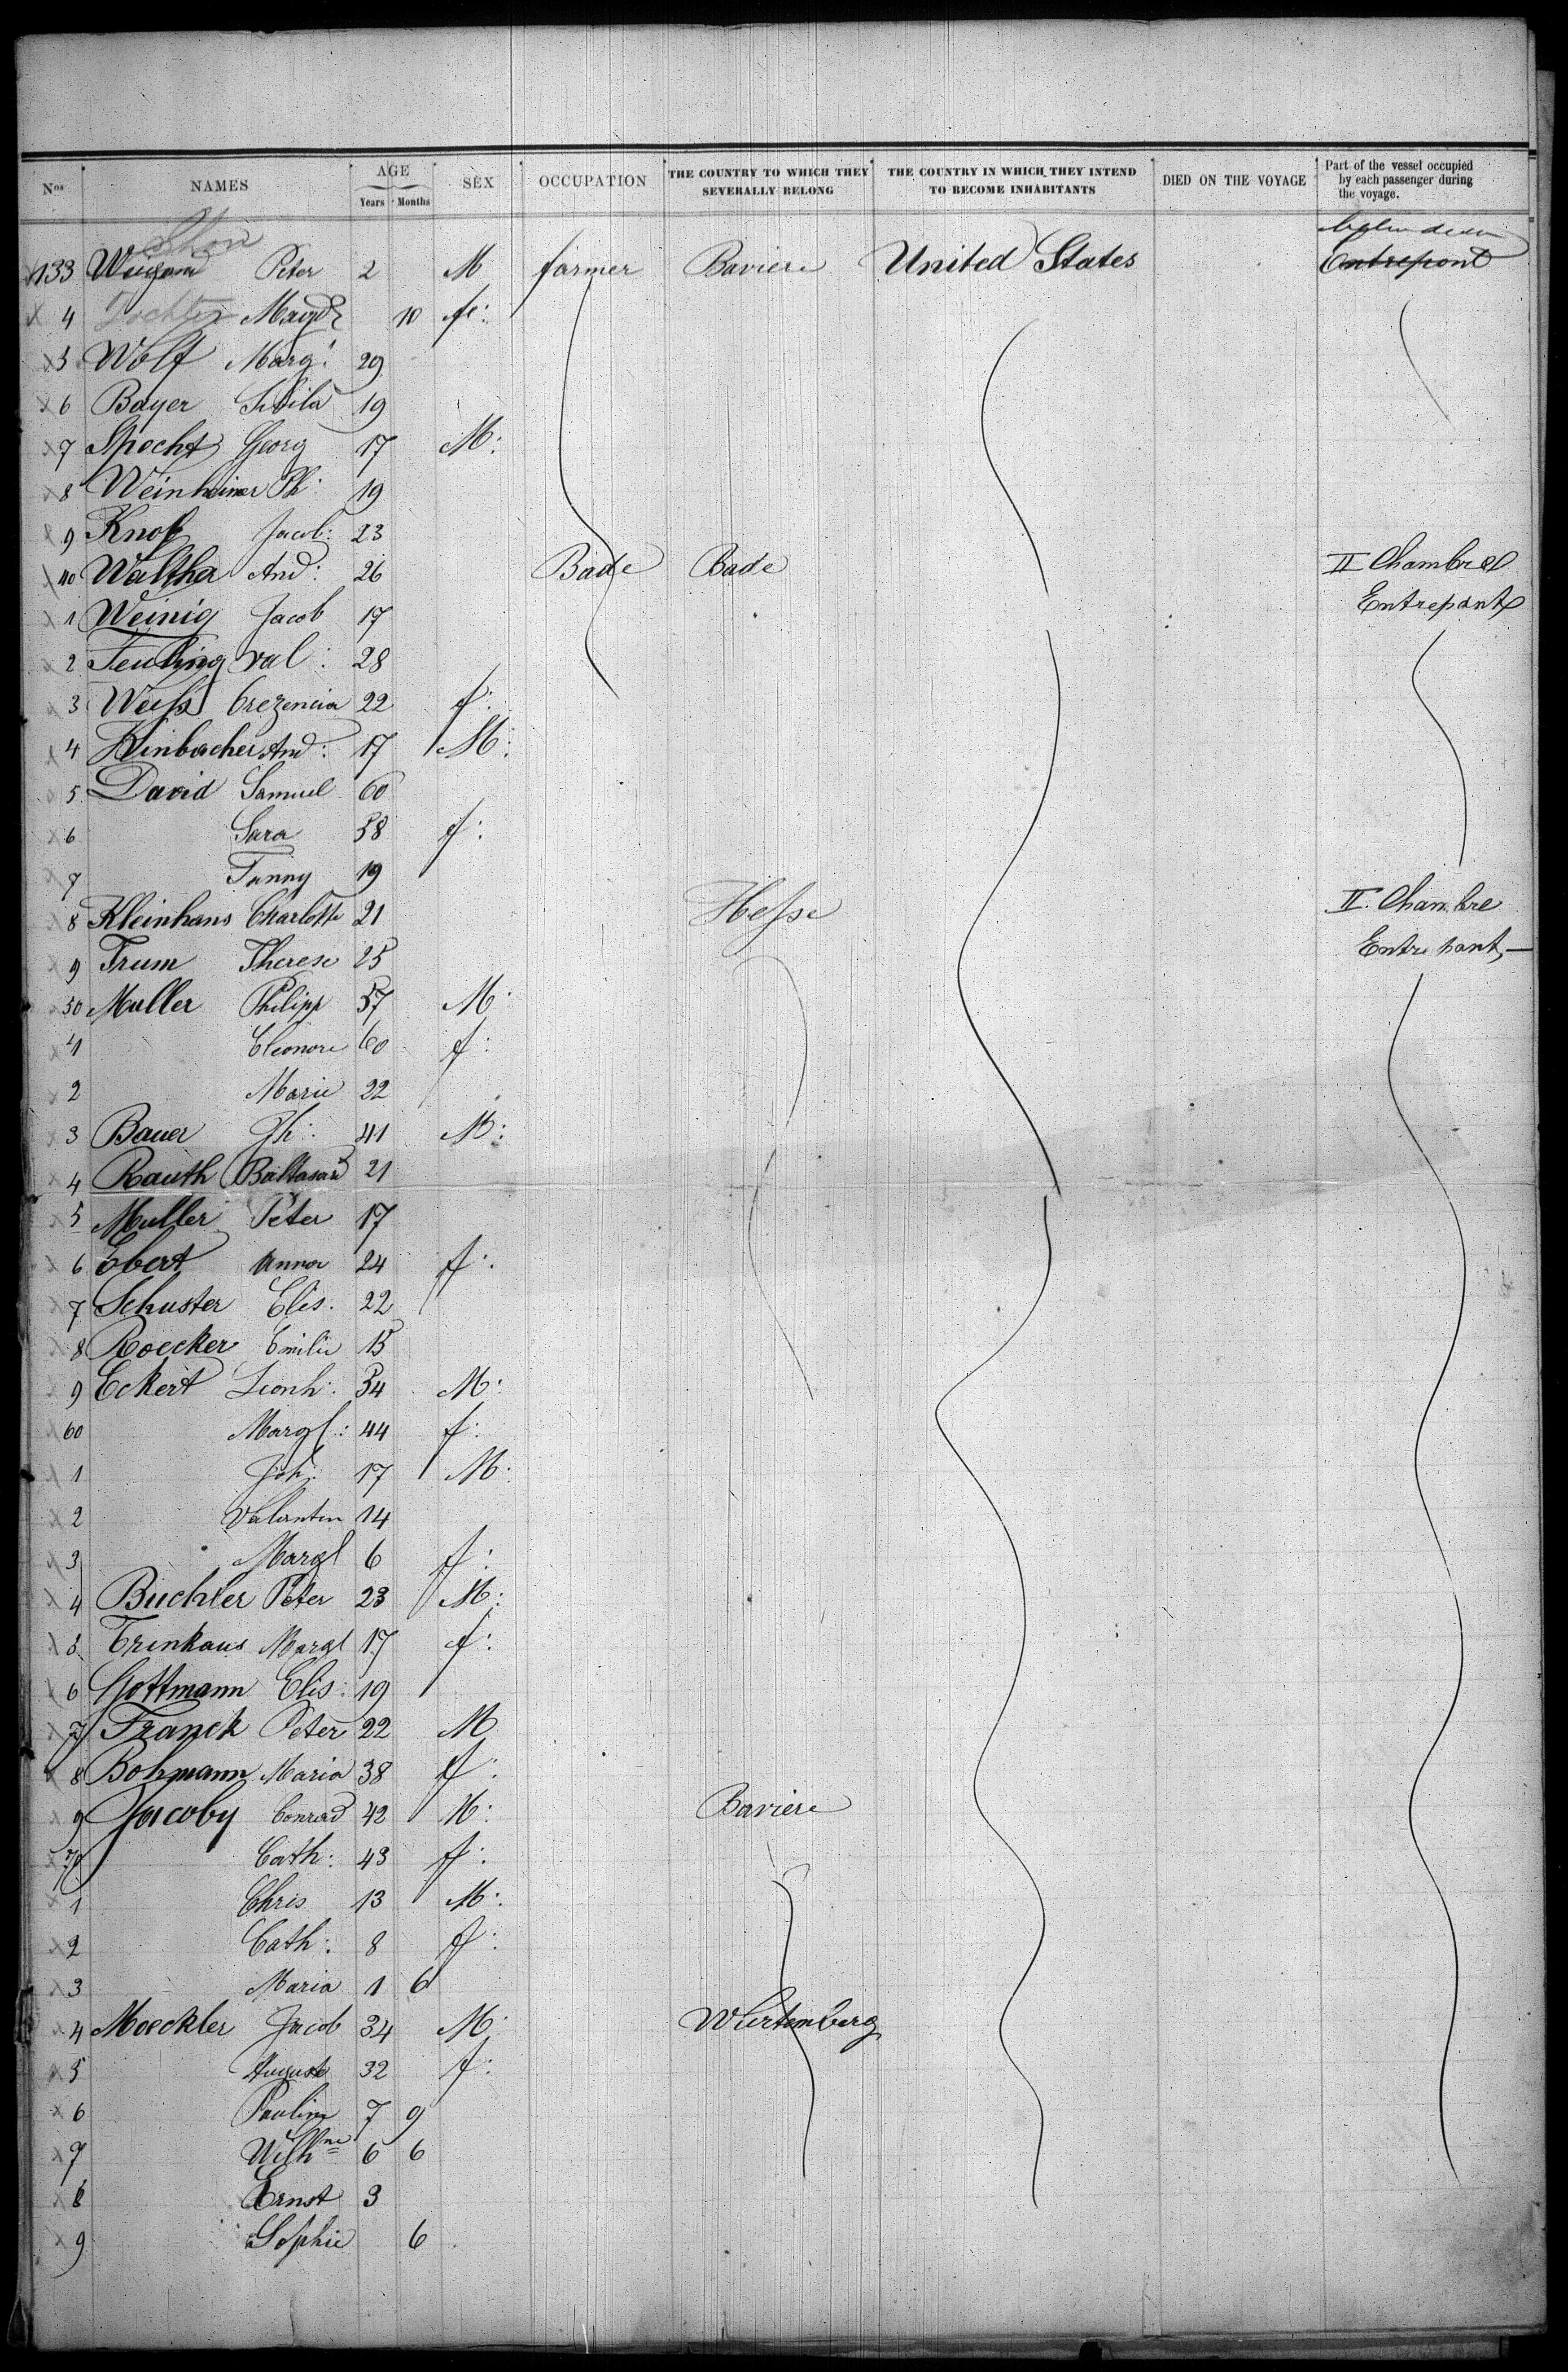 Nos NAMES AGE Years Months SEX OCCUPATION THE COUNTRY TO WHICH THEY SEVERALLY BELONG THE COUNTRY IN WHICH THEY INTEND TO BECOME INHABITANTS DIED ON THE VOYAGE Part of the vessel occupied by each passenger during the voyage.
133 Peter 2 M farmer Baviere United States Entrepont
4 Tochter 10 fe:
5 Wolf Marg: 29
6 Bayer 19
7 Specht Georg 17 M:
8 Weinheimer Ph: 19
9 Knof Jacob: 23
40 Walther And: 26 Bade Bade II Chambre
1 Weinig Jacob 17 Entrepont
2 Val: 28
3 Weiss Crezencia 22 f:
4 And: 17 M:
5 David Samuel 60
6 Sara 58 f:
7 Fanny 19
8 Kleinhans Charlotte 21 Hesse II. Chambre
9 Trum Therese 25 Entrepont
50 Muller Philipp 57 M:
1 Eleonore 60 f:
2 Marie 22
3 Bauer 41 M:
4 Rauth Baltasar 21
5 Muller Peter 17
6 Ebert Anna 24 f:
7 Schuster Elis. 22
8 Roecker Emilie 15
9 Eckert Leonh: 54 M:
60 Margt: 44 f:
1 Joh: 17 M:
2 Valentin 14
3 Margt 6 f:
4 Buchler Peter 23 M:
5 Trinkaus Margt 17 f:
6 Gottmann Elis: 19
7 Franck Peter 22 M
8 Bohmann Maria 38 f:
9 Jacoby Conrad 42 M: Baviere
70 Cath: 43 f:
1 Chris 13 M:
2 Cath: 8 f:
3 Maria 1 6
4 Moeckler Jacob 34 M: Wurtemberg
5 Auguste 32 f:
6 Pauline 7 9
7 Wilhne 6 6
8 Ernst 3
9 Sophie 6